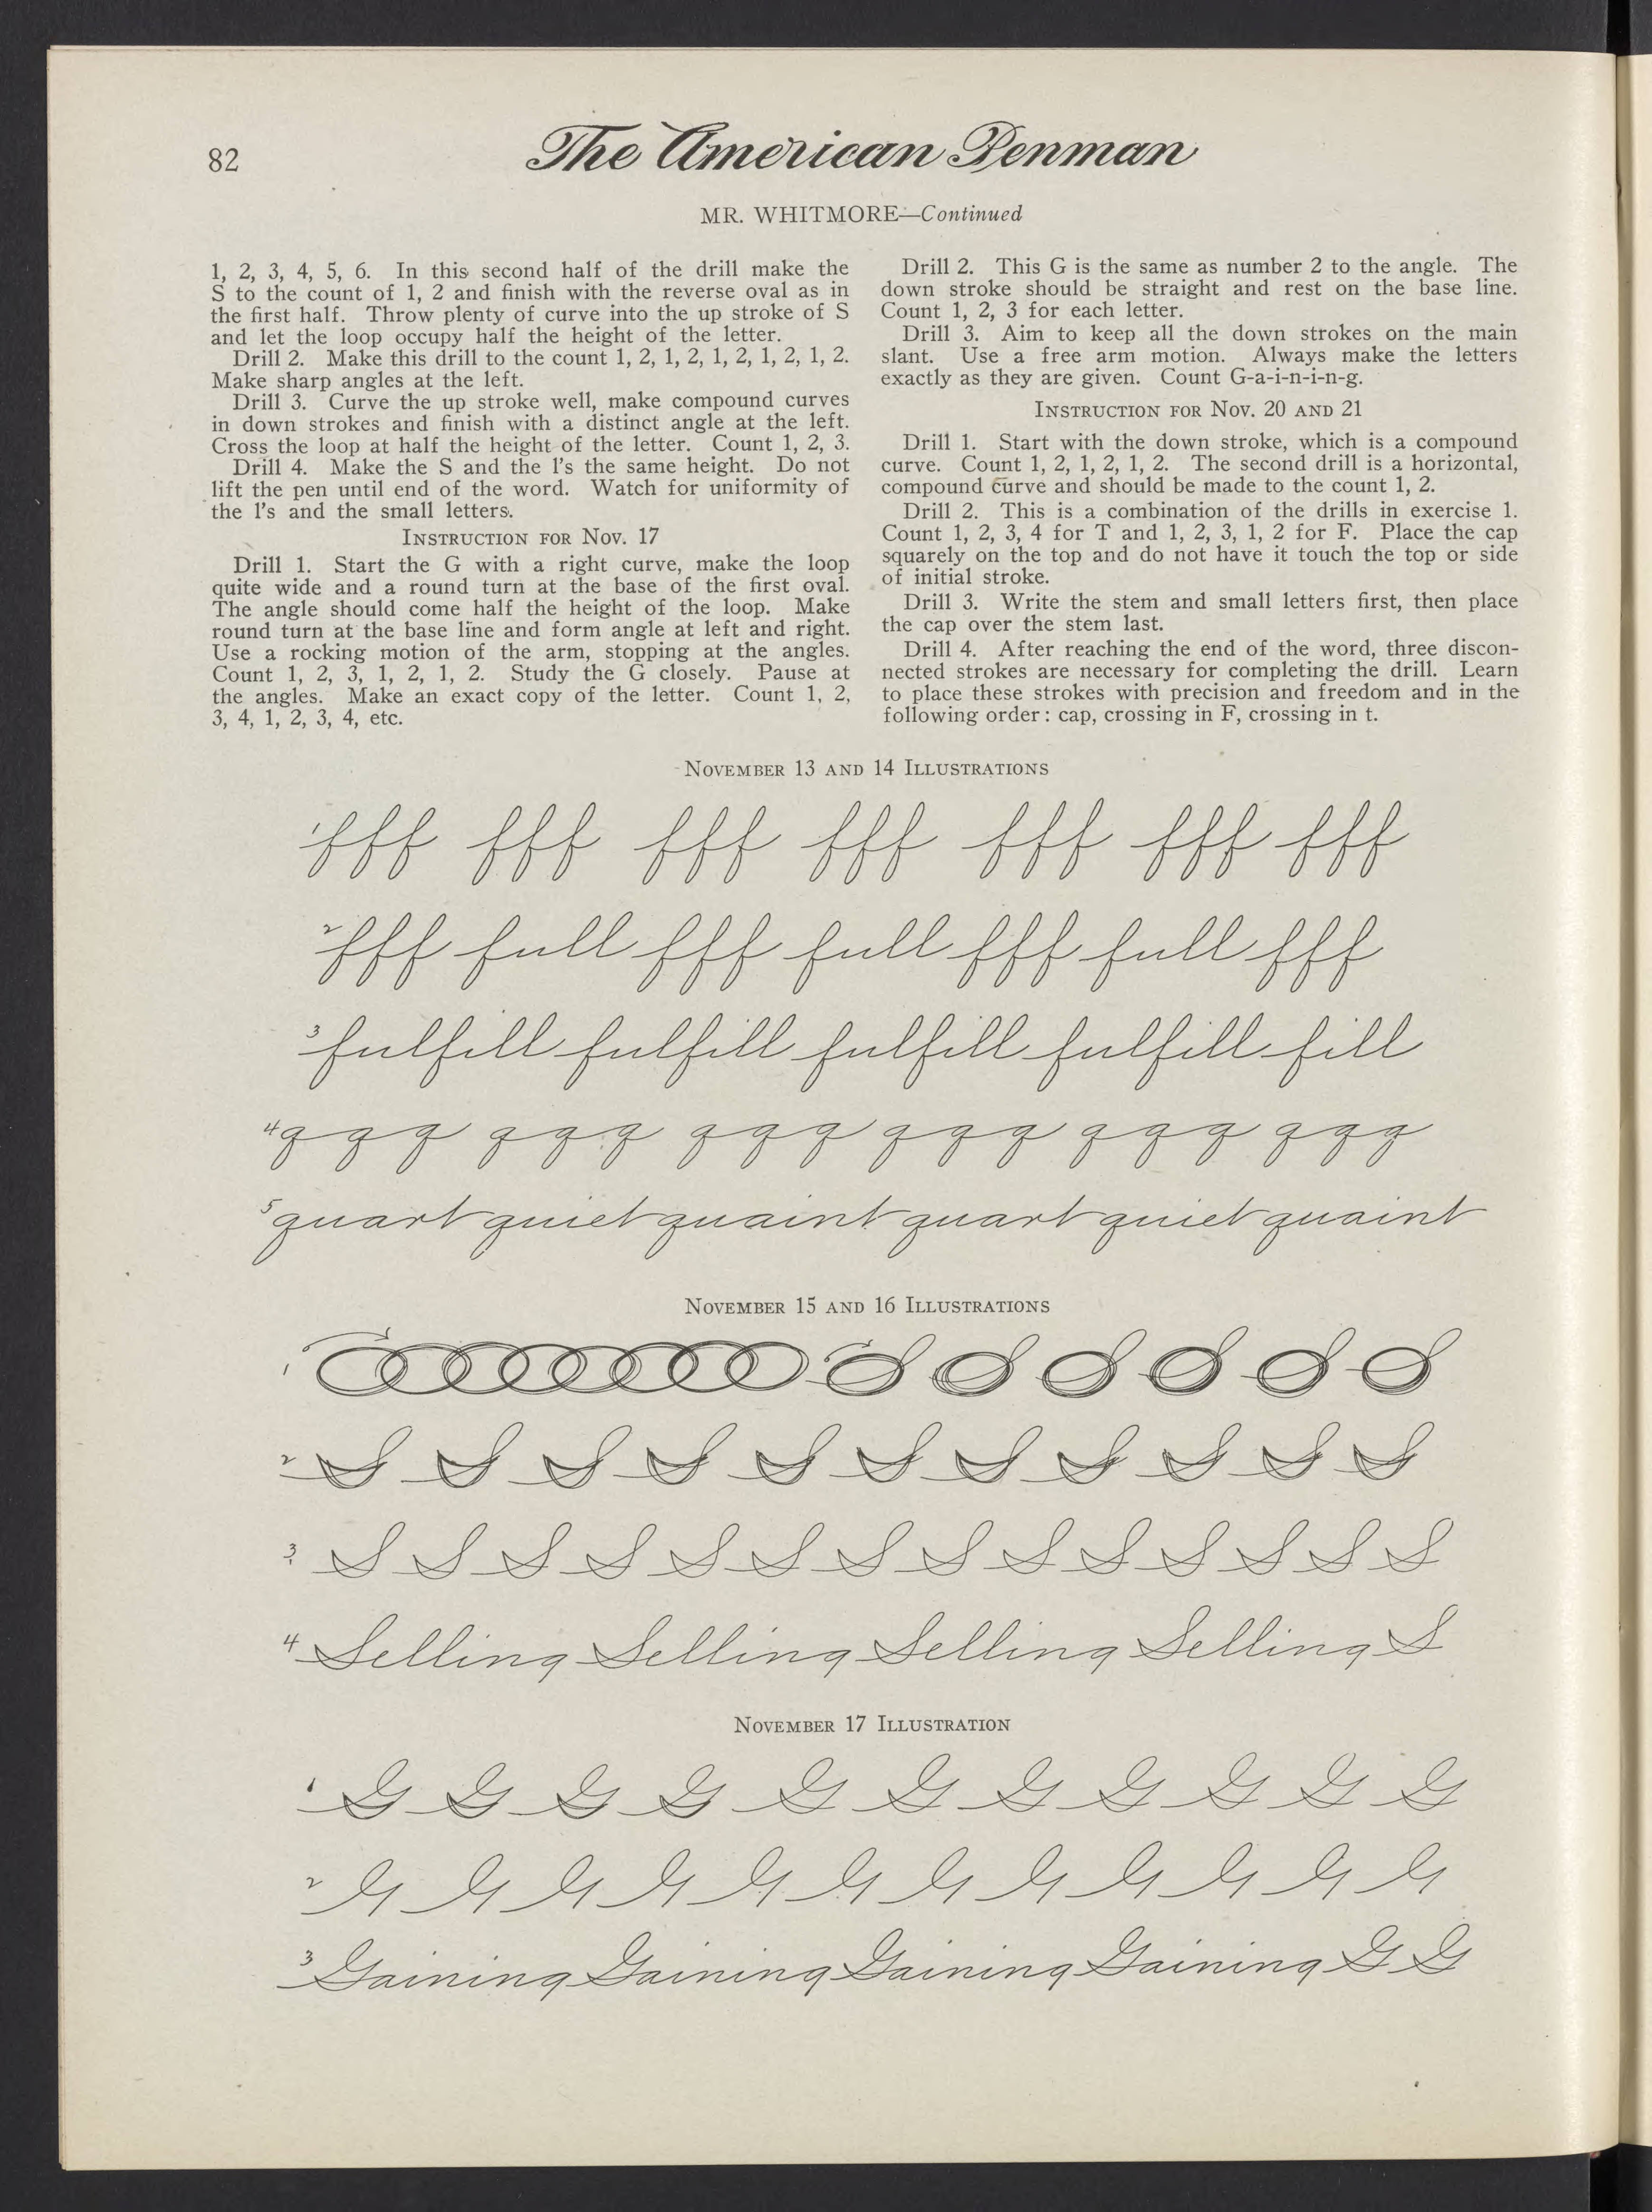 82
The American Penman
MR. WHITMORE—Continued
1, 2, 3, 4, 5, 6. In this second half of the drill make the
S to the count of 1, 2 and finish with the reverse oval as in
the first half. Throw plenty of curve into the up stroke of S
and let the loop occupy half the height of the letter.
Drill 2. Make this drill to the count 1, 2, 1, 2, 1, 2, 1, 2, 1, 2.
Make sharp angles at the left.
Drill 3. Curve the up stroke well, make compound curves
in down strokes and finish with a distinct angle at the left.
Cross the loop at half the height of the letter. Count 1, 2, 3.
Drill 4. Make the S and the l's the same height. Do not
lift the pen until end of the word. Watch for uniformity of
the l's and the small letters.
INSTRUCTION FOR NOV. 17
Drill 1. Start the G with a right curve, make the loop
quite wide and a round turn at the base of the first oval.
The angle should come half the height of the loop. Make
round turn at the base line and form angle at left and right.
Use a rocking motion of the arm, stopping at the angles.
Count 1, 2, 3, 1, 2, 1, 2. Study the G closely. Pause at
the angles. Make an exact copy of the letter. Count 1, 2,
3, 4, 1, 2, 3, 4, etc.
Drill 2. This G is the same as number 2 to the angle. The
down stroke should be straight and rest on the base line.
Count 1, 2, 3 for each letter.
Drill 3. Aim to keep all the down strokes on the main
slant. Use a free arm motion. Always make the letters
exactly as they are given. Count G-a-i-n-i-n-g.
INSTRUCTION FOR NOV. 20 AND 21
Drill 1. Start with the down stroke, which is a compound
curve. Count 1, 2, 1, 2, 1, 2. The second drill is a horizontal,
compound curve and should be made to the count 1, 2.
Drill 2. This is a combination of the drills in exercise 1.
Count 1, 2, 3, 4 for T and 1, 2, 3, 1, 2 for F. Place the cap
squarely on the top and do not have it touch the top or side
of initial stroke.
Drill 3. Write the stem and small letters first, then place
the cap over the stem last.
Drill 4. After reaching the end of the word, three discon-
nected strokes are necessary for completing the drill. Learn
to place these strokes with precision and freedom and in the
following order: cap, crossing in F, crossing in t.
NOVEMBER 13 AND 14 ILLUSTRATIONS
1 fff fff fff fff fff fff fff
2 fff full fff full fff full fff
3 fulfill fulfill fulfill fulfill fill
4 q q q q q q q q q q q q q q q q q q
5 quart quiet quaint quart quiet quaint
NOVEMBER 15 AND 16 ILLUSTRATIONS
1
2 S S S S S S S S S S S
3 S S S S S S S S S S S S S S
4 Selling Selling Selling Selling S
NOVEMBER 17 ILLUSTRATION
1 G G G G G G G G G G G
2 G G G G G G G G G G G G
3 Gaining Gaining Gaining Gaining G G